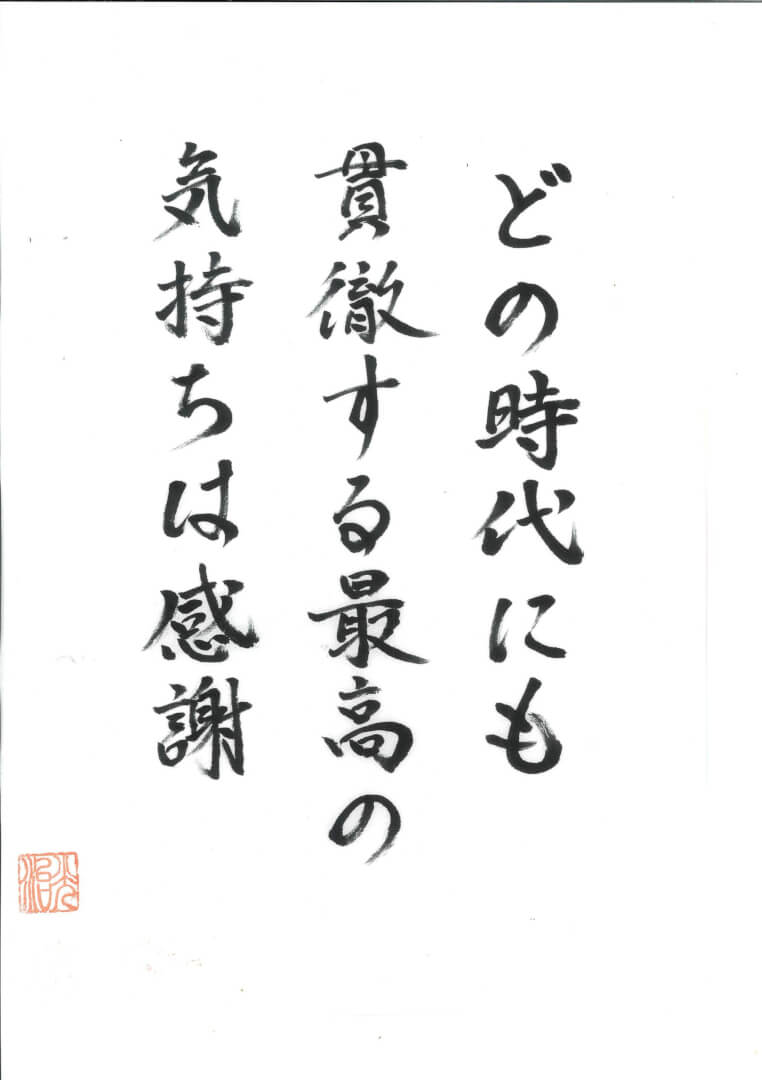 どの時代にも
貫徹する最高の
気持ちは感謝